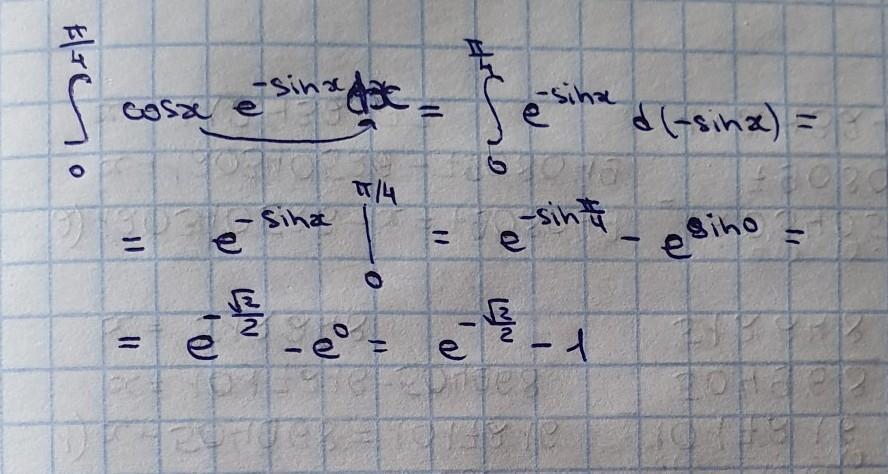 ∫₀^{π/4} cosx e^{-sinx} dx = ∫₀^{π/4} e^{-sinx} d(-sinx) =
= e^{-sinx} |₀^{π/4} = e^{-sin π/4} - e^{sin0} =
= e^{-√2/2} - e⁰ = e^{-√2/2} - 1